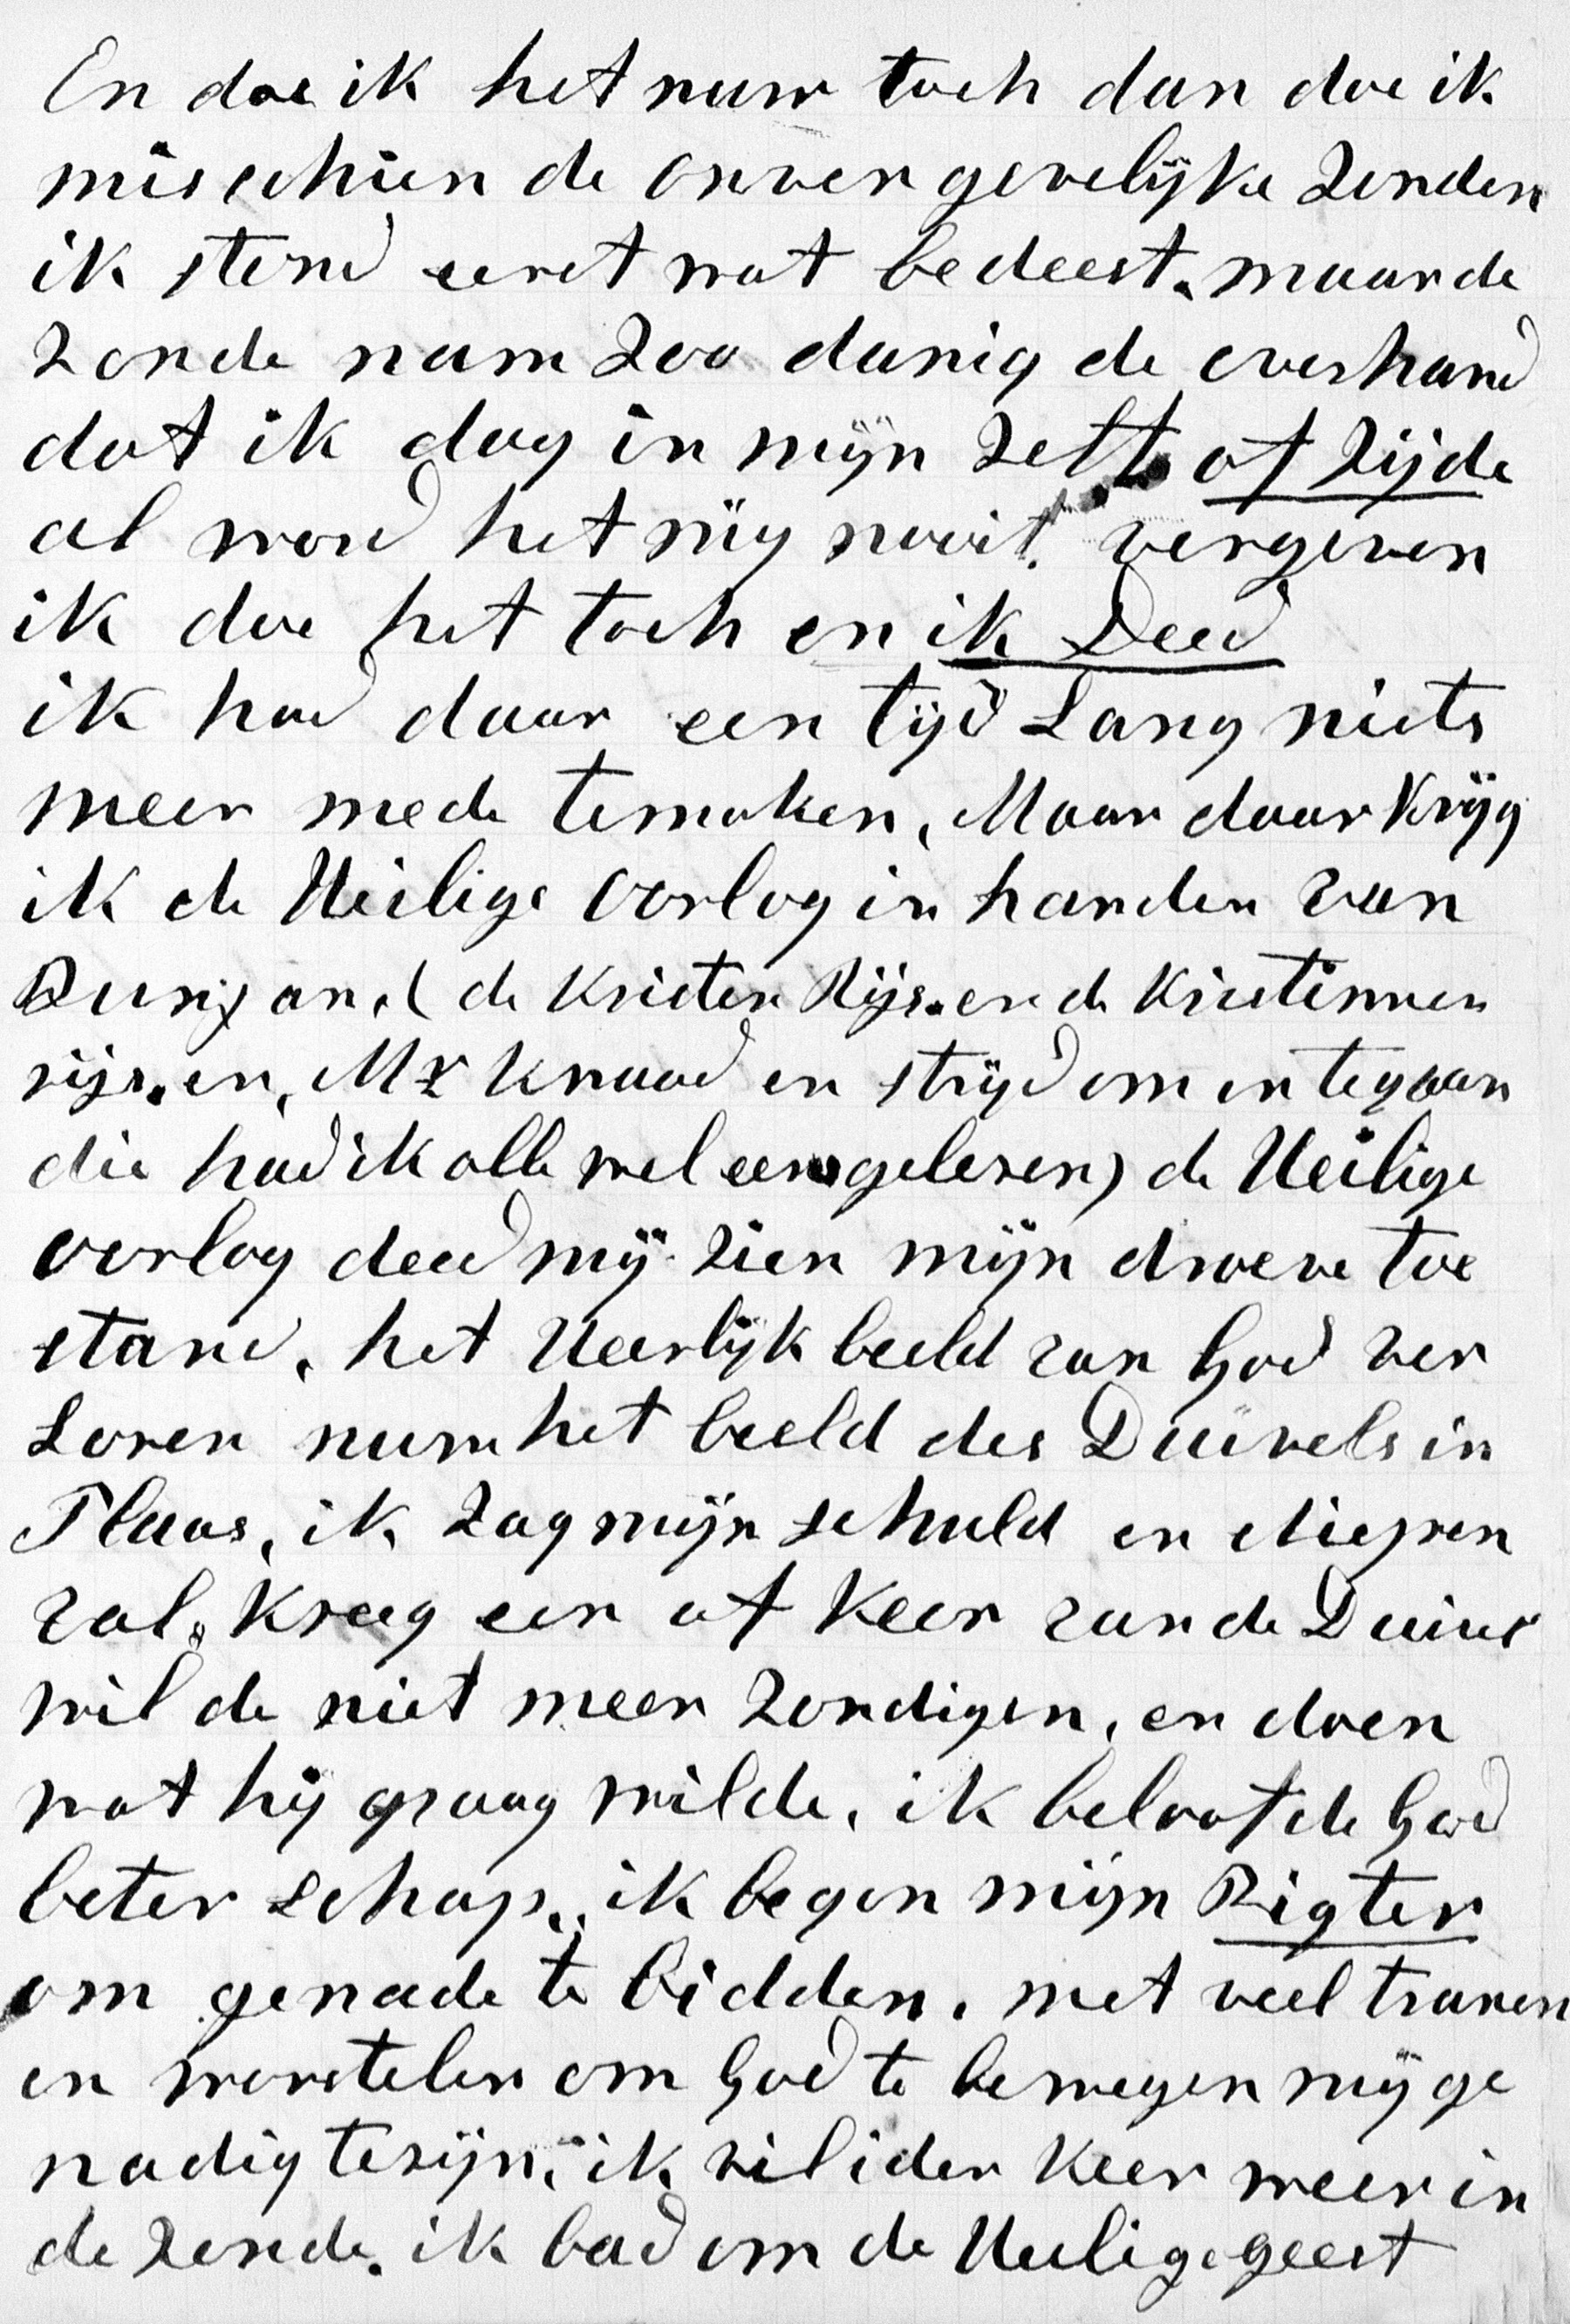 En doe ik het nuw toch dan doe ik
mischien de onvergevelijke Zonden
ik stond eerst wat bedeest. maar de
Zonde nam Zoo danig de overhand
dat ik dag in mijn Zelf of Zijde
al word het mij nooit vergeven
ik doe het toch en ik Deed
ik had daar een tijd Lang niets
meer mede temaken, Maar daar Krijg
ik de Heilige oorlog in handen van
Bunjan, ( de Kristen Rijs. en de Kristinnen
rijs. en, Mr Kwaad en strijd om in tegaan
die had ik alle wel eens gelesen) de Heilige
oorlog deed mij zien mijn droeve toe
stand, het Heerlijk beeld van God ver
Loren nuw het beeld des Duivels in
Plaas, ik Zag mijn schuld en diepen
val, Kreeg een af Keer van de Duivel
wil de niet meer Zondigen, en doen
wat hij graag wilde, ik beloofde God
beter schap, ik begon mijn Rigter
om genade te bidden, met veel tranen
en worstelen om God te bewegen mij ge
nadig tesijn, ik viel ider Keer weer in
de Zonde. ik bad om de Heilige geest